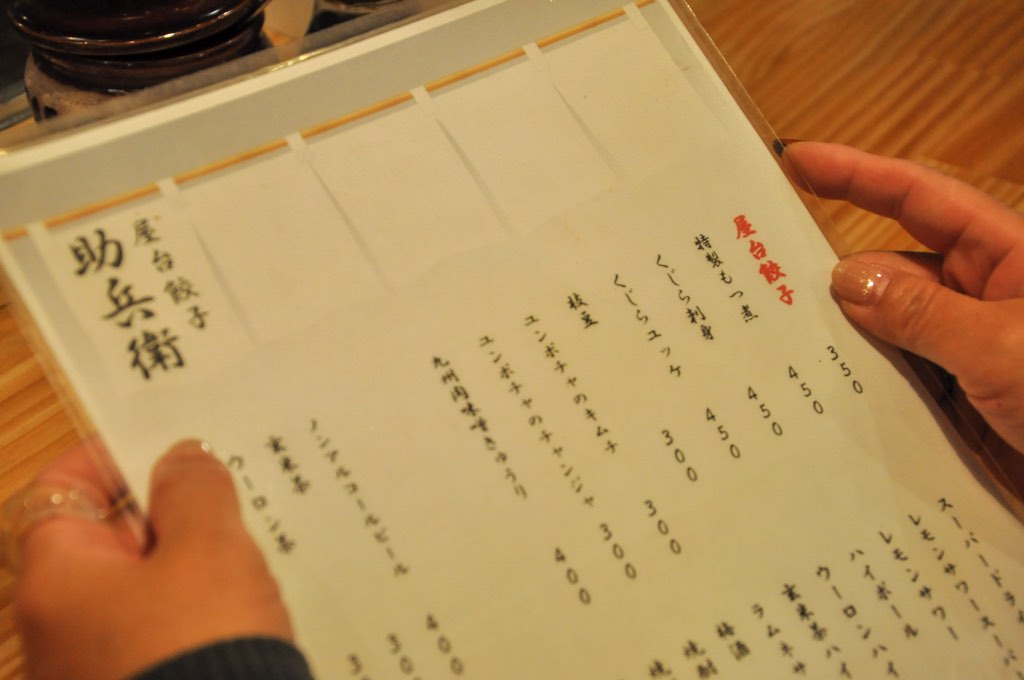 屋台餃子 350
特製もつ煮 450
くじら刺身 450
くじらユッケ 450
枝豆 300
ユンボチャのキムチ 300
ユンボチャのチャンジャ 300
九州肉味噌きゅうり 400
スーパードラ
レモンサワースーパー
レモンサワー
ハイボール
ウーロンハイ
玄米茶ハイ
ラムネサ
梅酒
焼酎
焼
ノンアルコールビール 400
玄米茶 30
ウーロン茶 3
屋台餃子
助兵衛